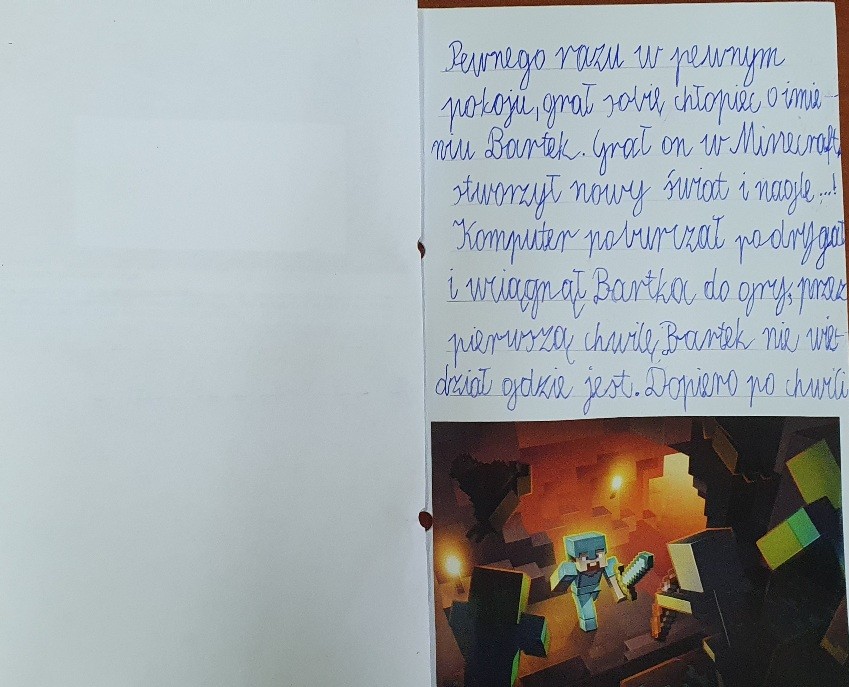 Pewnego razu w pewnym
pokoju, grał sobię chłopiec o imie-
niu Bartek. Grał on w Minecraft,
stworzył nowy świat i nagle...!
Komputer poburczał podrygał
i wciągnął Bartka do gry, przez
pierwszą chwilę, Bartek nie wie-
dział gdzie jest. Dopiero po chwili